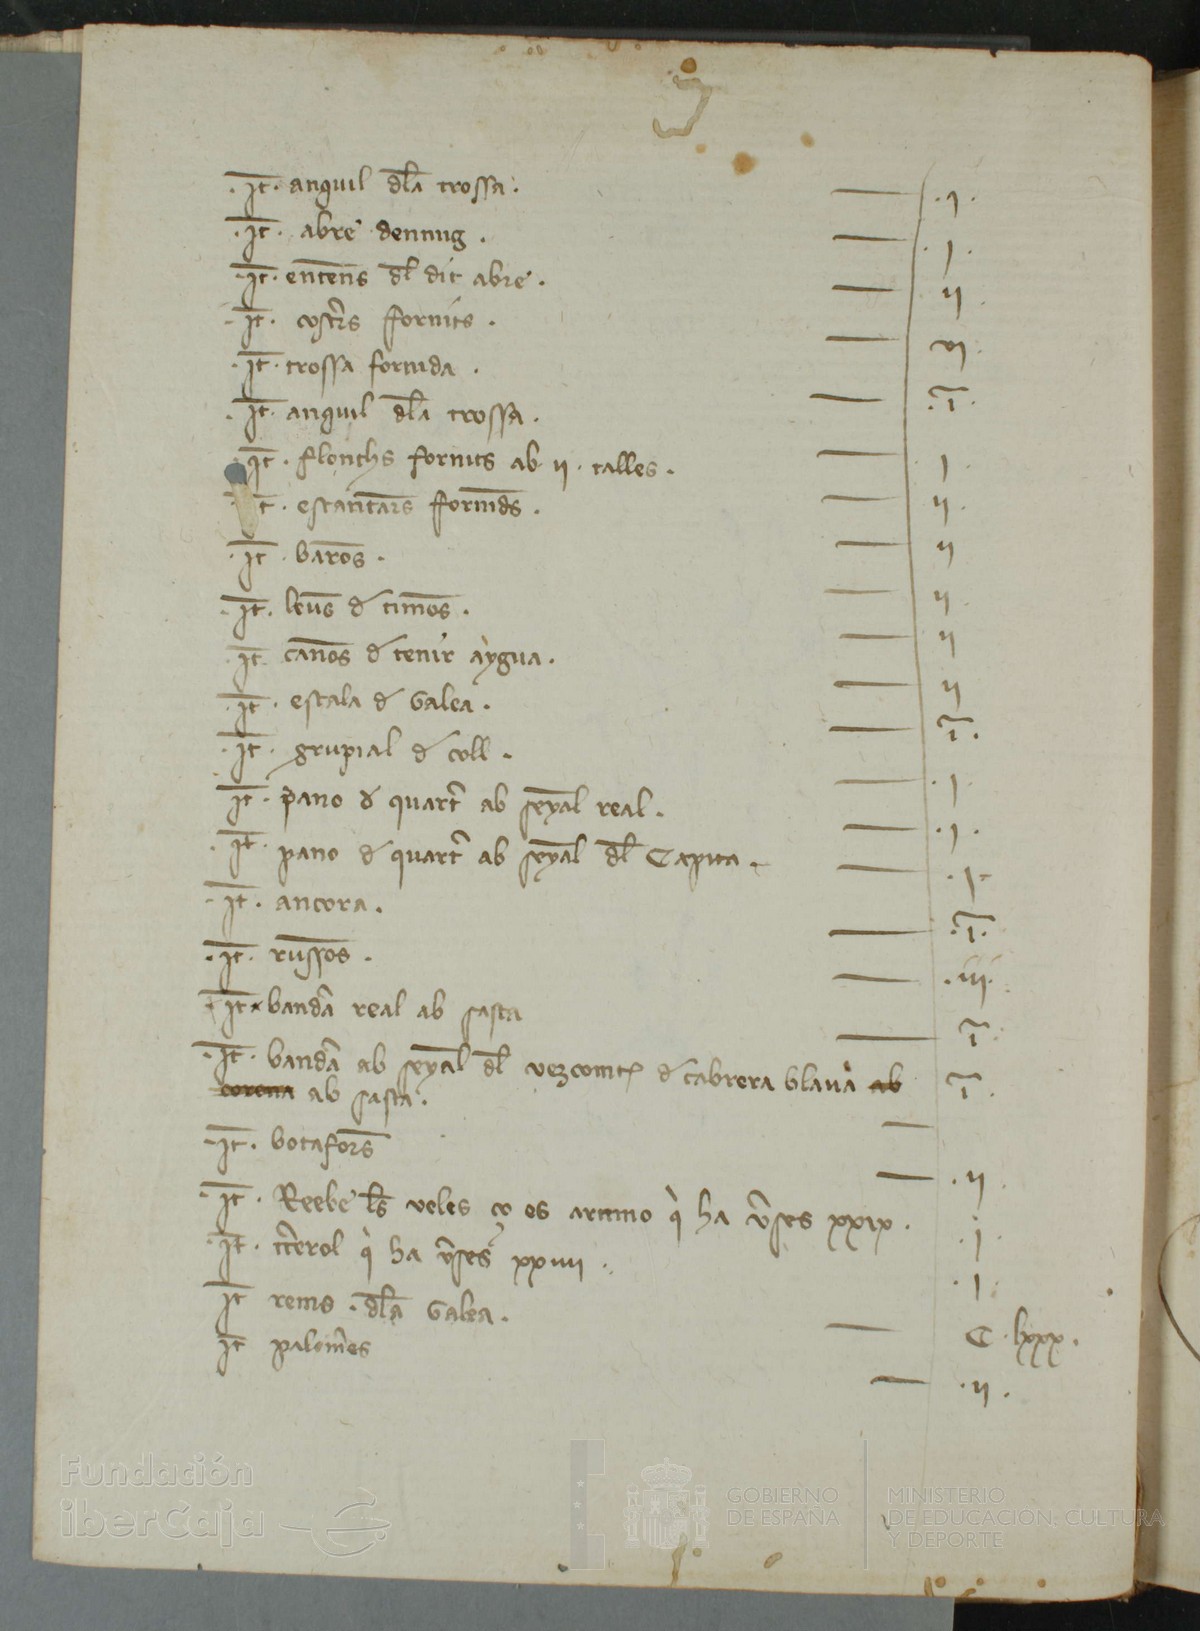 ·It· anquil dla trossa· — ·j·
·It· abre denmig · — ·j·
·It· entens dl dit abre · — ij ·
·It· costers fornits · — vj ·
·It· trossa fornida · — ·i·
·It· anquil dla trossa · — j
·It· flonchs fornits ab ·ij· talles · — ij ·
·It· escantars fornids · — ij
·It· baros · — ij ·
·It· leus d timos · — ij
·It· canos d tenir aygua · — ij
·It· escala d Galea · — ·i·
·It· grupial d coll · — ·j·
·It· pano d quartr ab senyal real · — ·j·
·It· pano d quartr ab senyal dl Capita · — ·j·
·It· ancora · — ·i·
·It· russos · — ·iij·
·It· bandra real ab sasta — i
·It· bandra ab senyal dl vezcomte d cabrera blaua ab — i ·
corona ab sasta ·
·It· botafors — ·ij ·
·It· Reebe ls veles ço es artimo q ha vrses xxix · j ·
·It· trerol q ha vrses xxiiij · j
It rems · dla Galea · — C·lxxx·
It palomres — ·ij ·
Fundación
iberCaja
GOBIERNO
DE ESPAÑA
MINISTERIO
DE EDUCACIÓN, CULTURA
Y DEPORTE